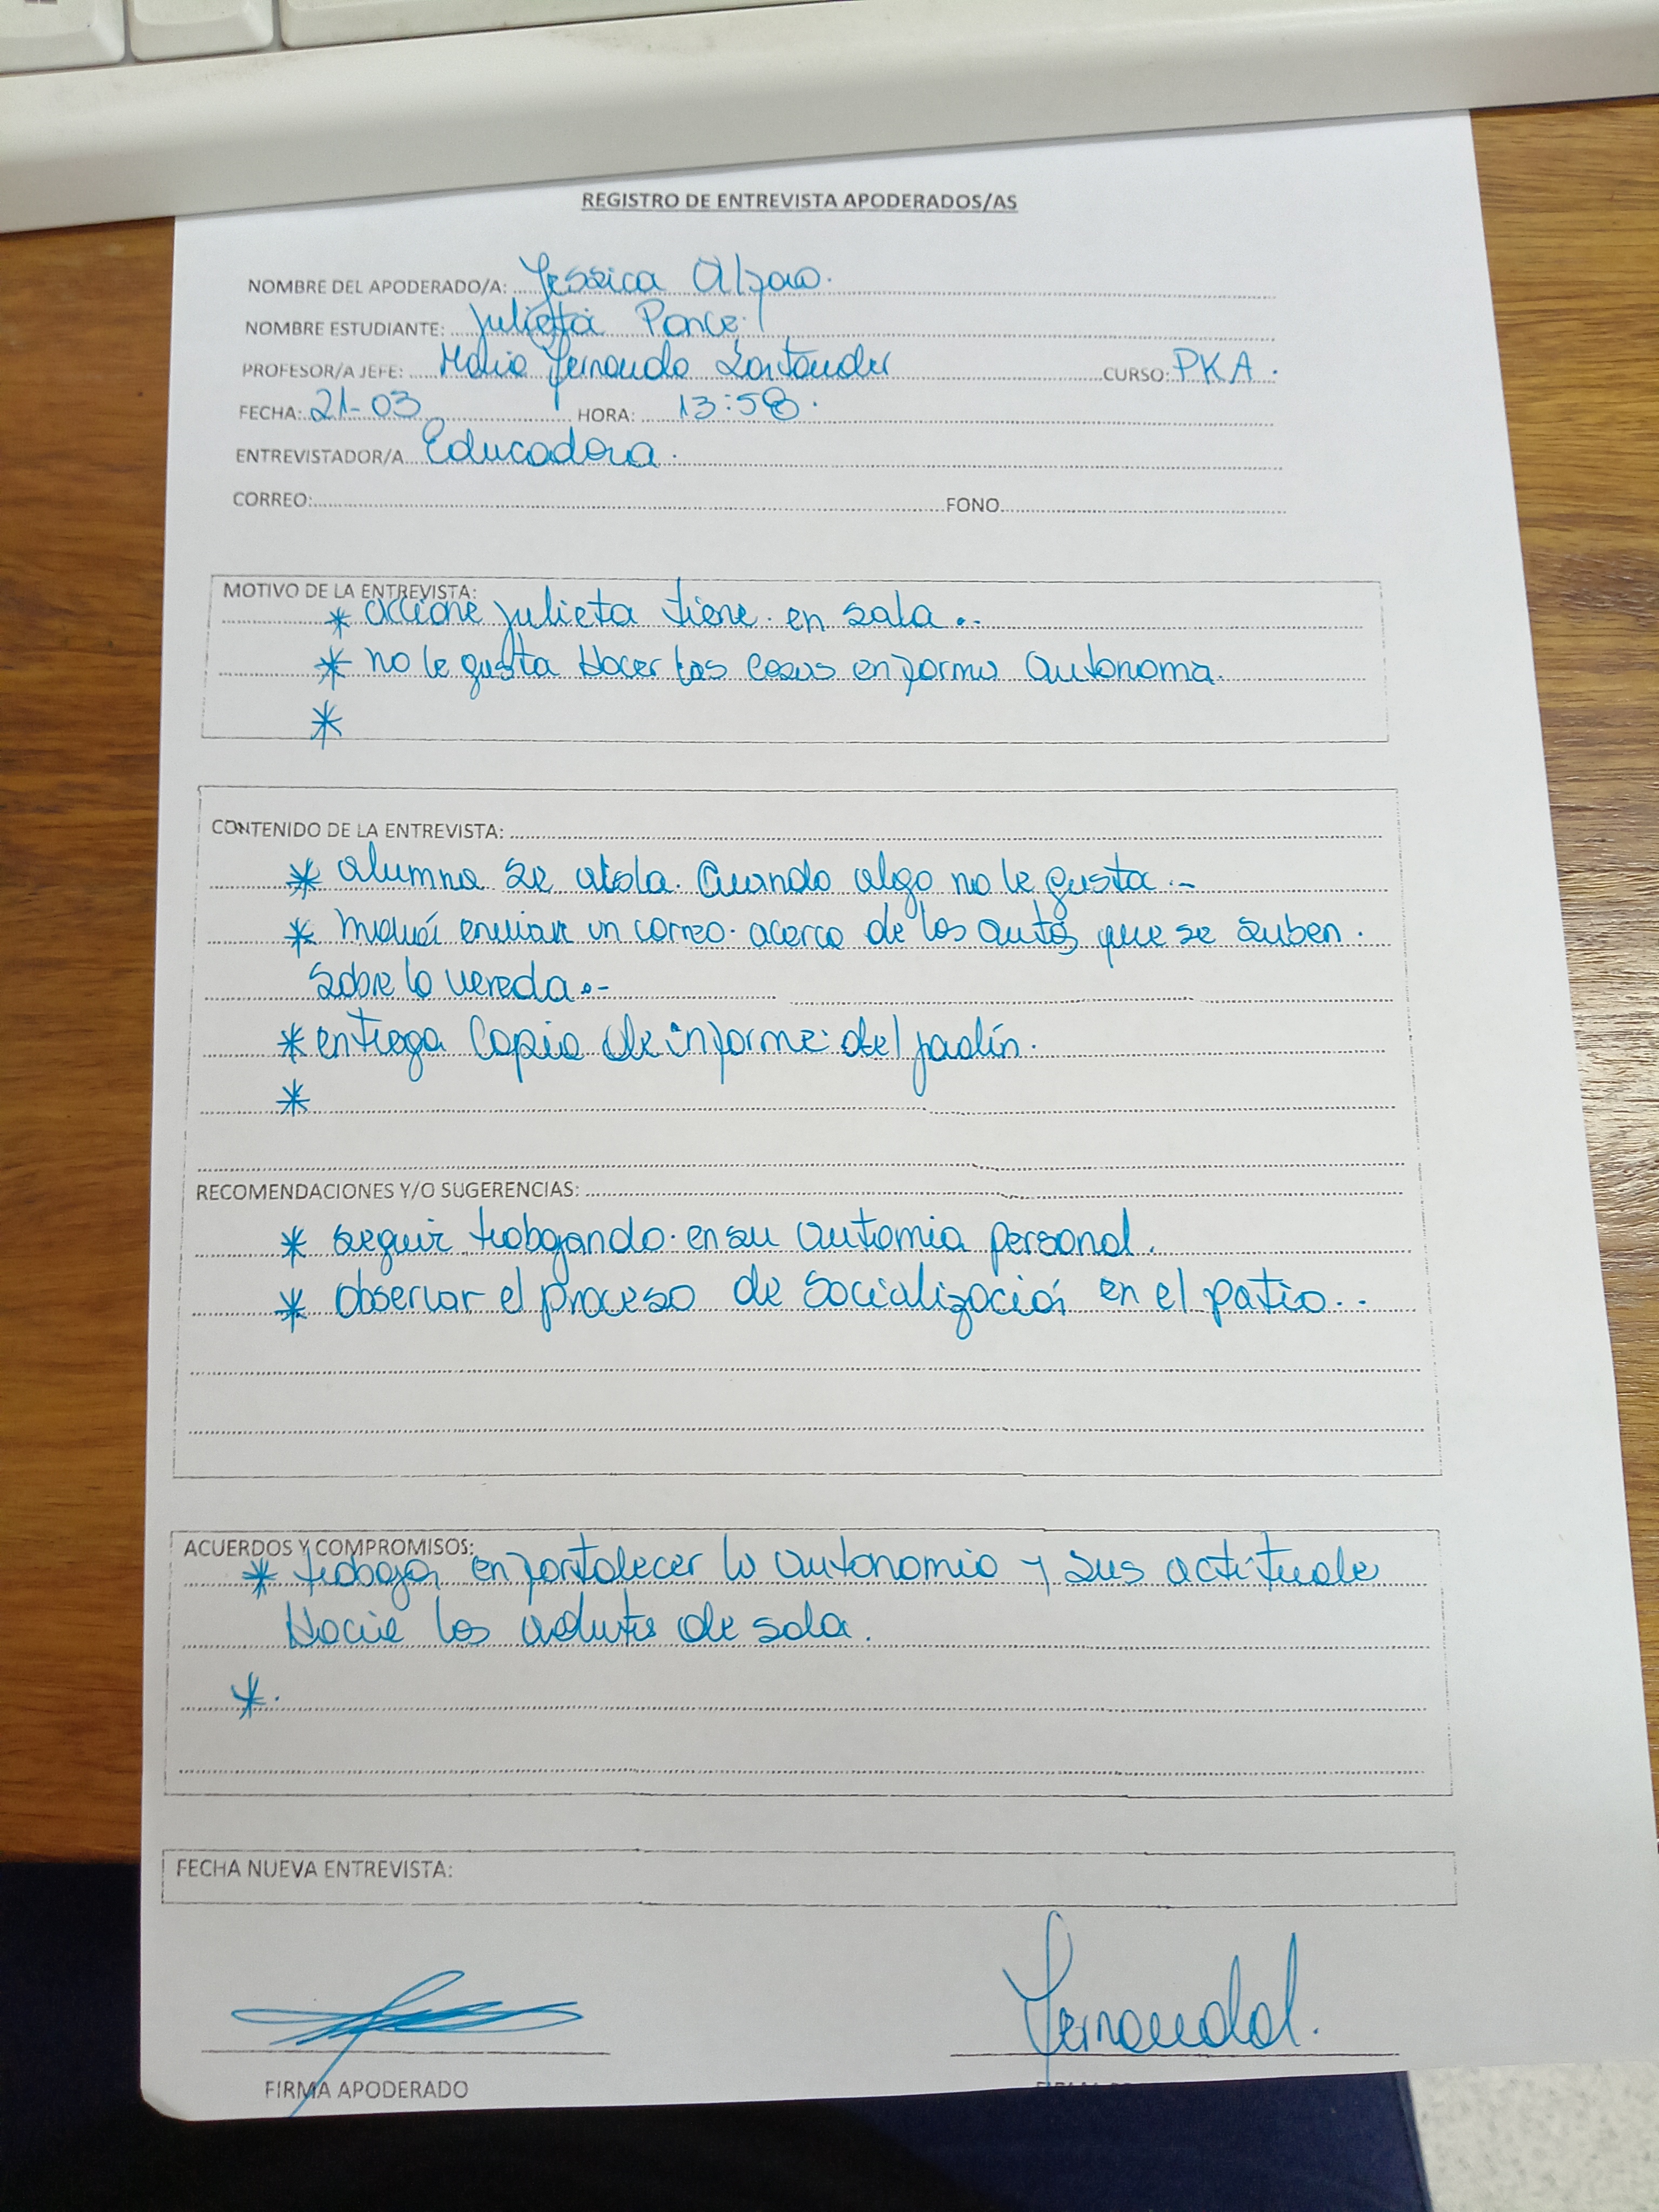 REGISTRO DE ENTREVISTA APODERADOS/AS
NOMBRE DEL APODERADO/A: Jessica
NOMBRE ESTUDIANTE: Julieta Ponce
PROFESOR/A JEFE: Maria Fernanda Santander CURSO: PKA.
FECHA: 21-03 HORA: 13:58.
ENTREVISTADOR/A Educadora.
CORREO: FONO
MOTIVO DE LA ENTREVISTA:
* accione Julieta tiene en sala..
* no le gusta Hacer las cosas en forma autonoma.
*
CONTENIDO DE LA ENTREVISTA:
* alumna se aisla. Cuando algo no le gusta.-
* enviar un correo acerca de los autos que se suben.
sobre la vereda.-
* entrega copia de informe del jardín.
*
RECOMENDACIONES Y/O SUGERENCIAS:
* seguir trabajando en su automia personal.
* observar el proceso de socializació en el patio..
ACUERDOS Y COMPROMISOS:
* trabajar en fortalecer la autonomia y sus actitude
Hacia los de sala.
*.
FECHA NUEVA ENTREVISTA:
FIRMA APODERADO